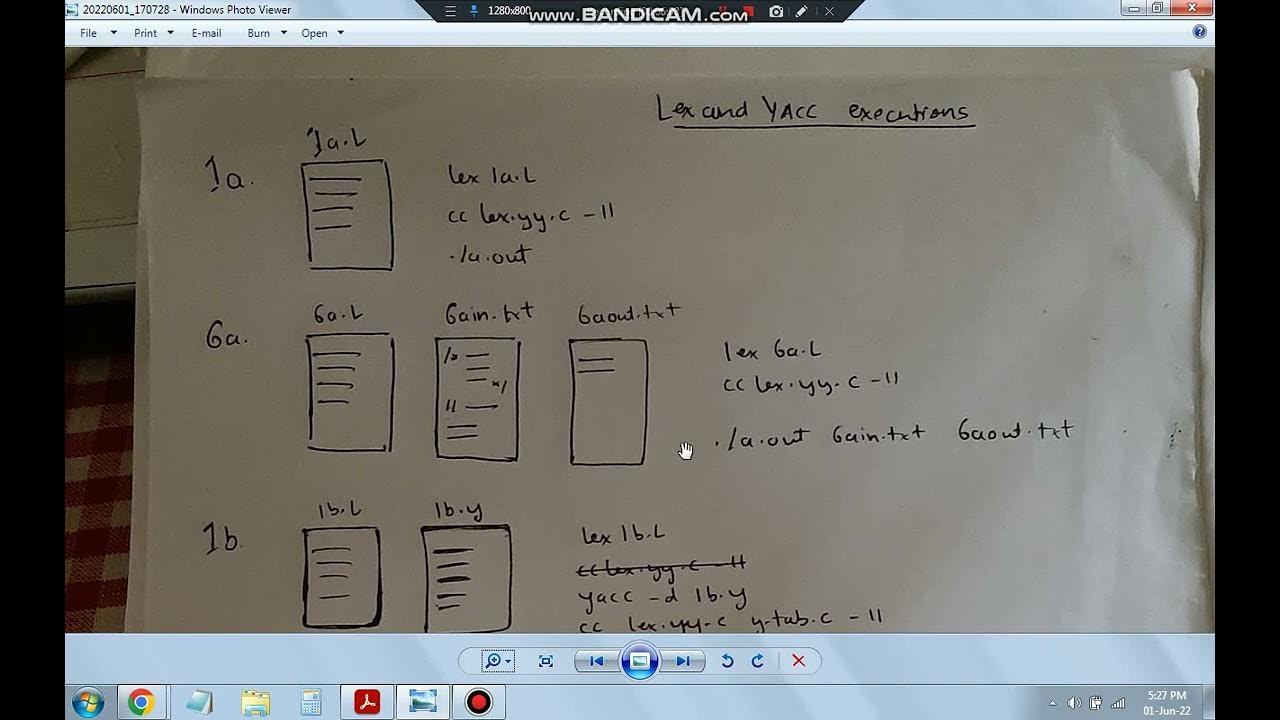 20220601_170728 - Windows Photo Viewer
1280x800
www.BANDICAM.com
File Print E-mail Burn Open
Lex and YACC executions
1a.
1a.L
lex 1a.L
cc lex.yy.c -ll
./a.out
6a.
6a.L 6ain.txt 6aout.txt
/* */
//
lex 6a.L
cc lex.yy.c -ll
./a.out 6ain.txt 6aout.txt
1b.
1b.L 1b.y
lex 1b.L
cc lex.yy.c -ll
yacc -d 1b.y
cc lex.yy.c y.tab.c -ll
5:27 PM
01-Jun-22